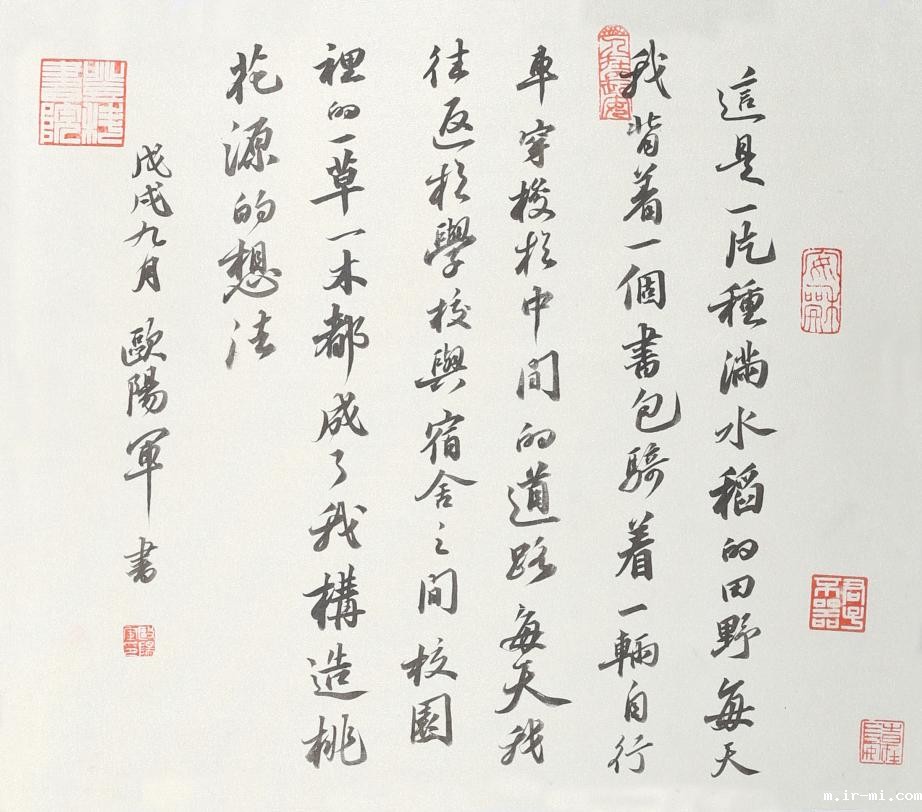 這是一片種滿水稻的田野每天
我背着一個書包騎着一輛自行
車穿梭於中間的道路每天我
往返於學校與宿舍之間校園
裡的一草一木都成了我構造桃
花源的想法
戊戌九月 歐陽軍 書
君子不器
m.ir-mi.com